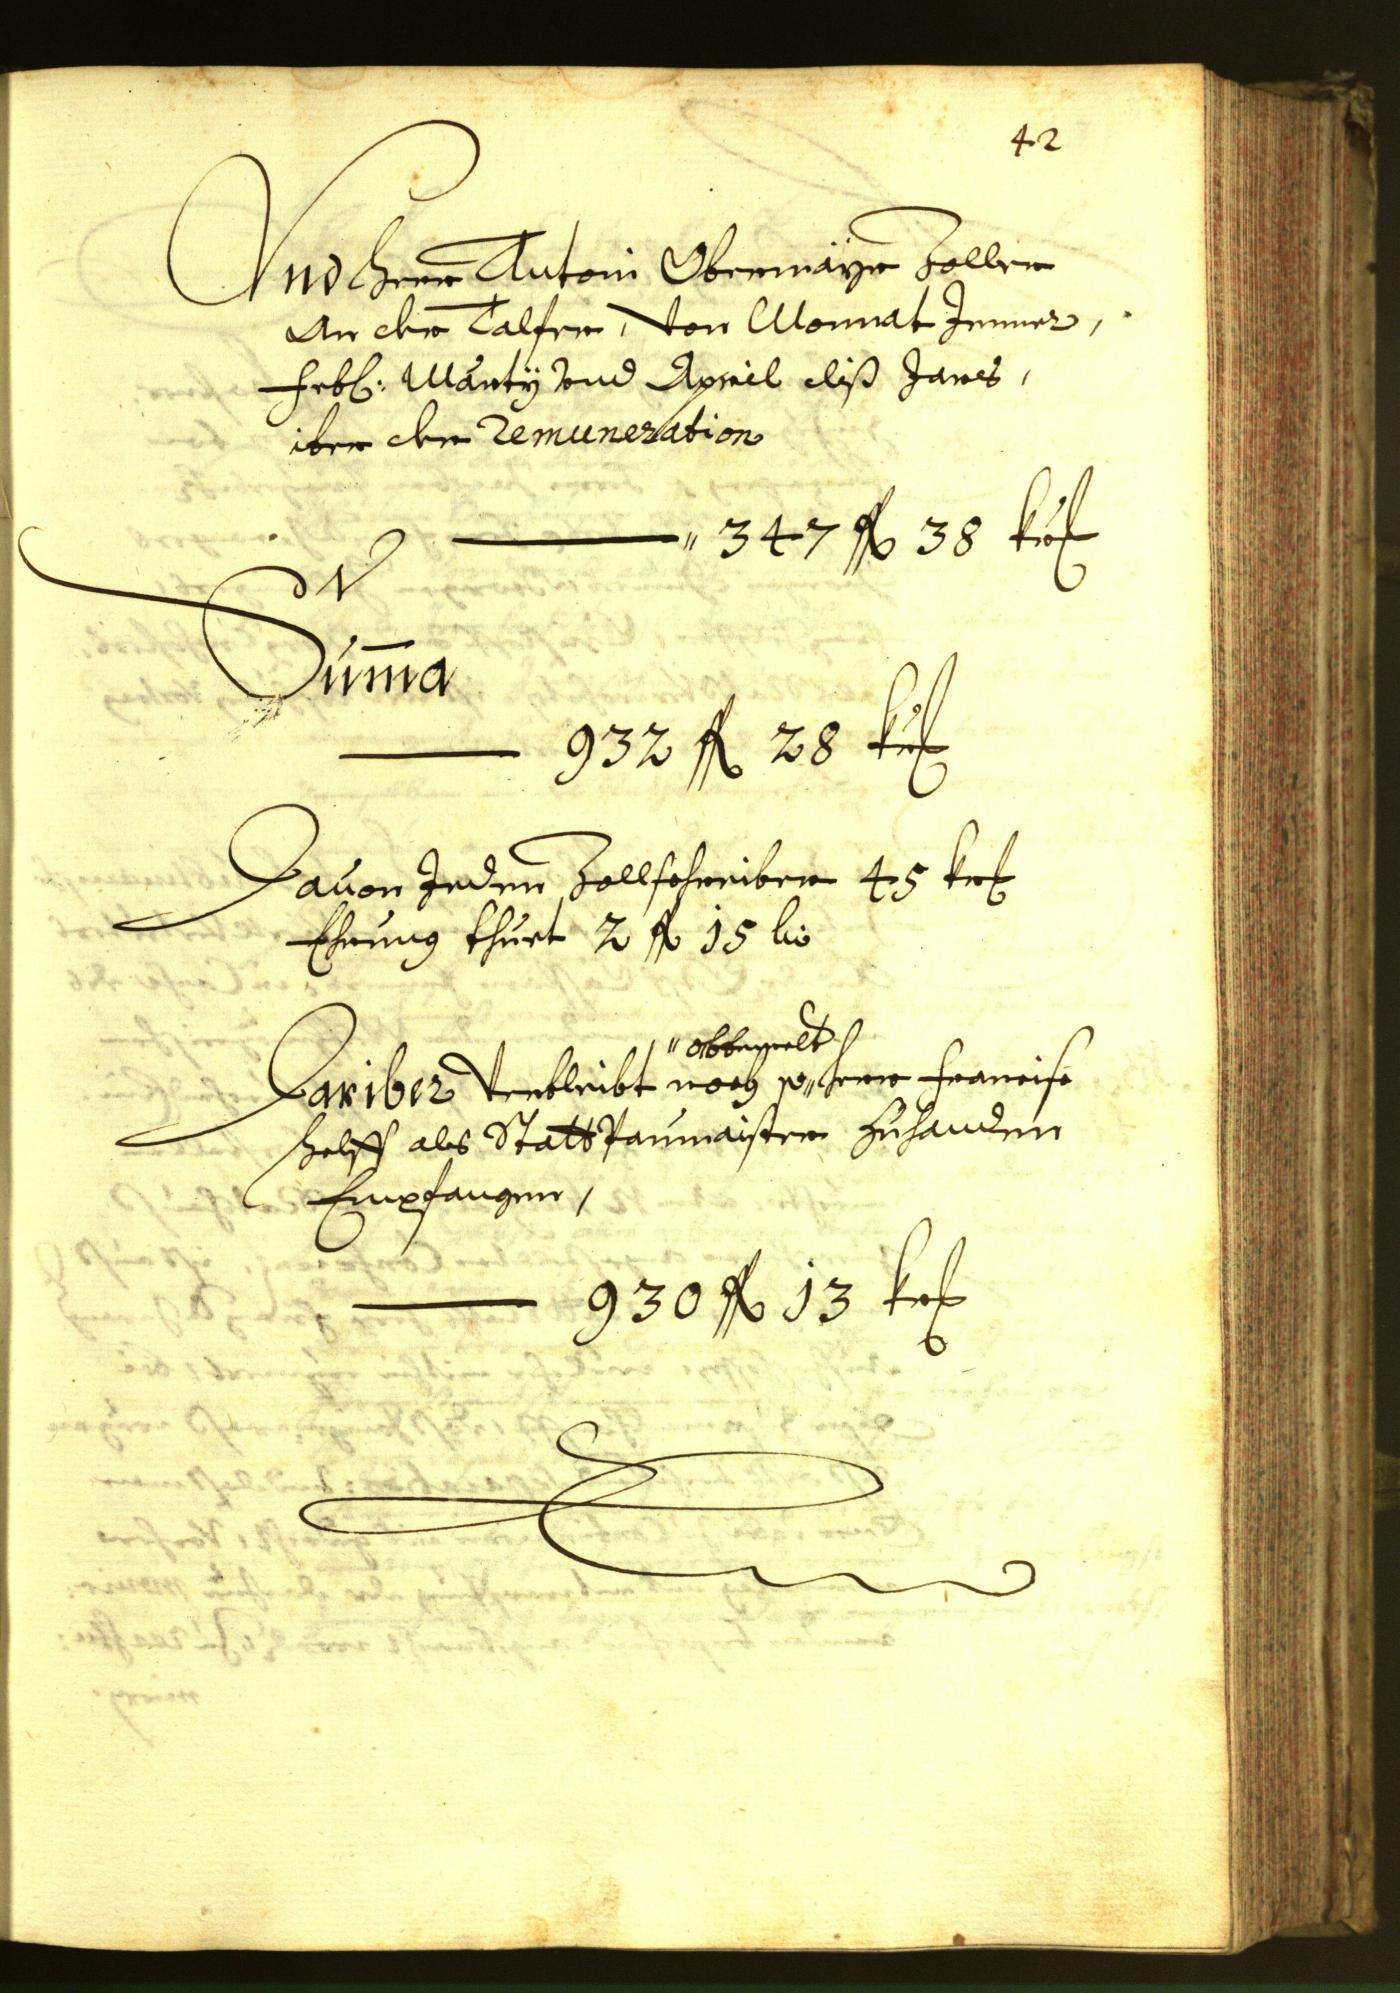 42
Und Herr Antoni Obermayr Zoller
An der Talfer, von Monnat Jenner,
Febl: Marty und April diß Jares,
iber der Remuneration
" 347 fl 38 kr
Summa
932 fl 28 kr
Davon Jeden Zollschreiber 45 kr
Ehrung thuet 2 fl 15 kr
"obbemelt
Dariber verbleibt noch so" Herr Francisc
Helff als Statt Paumaister zuhanden
Empfangen,
930 fl 13 kr